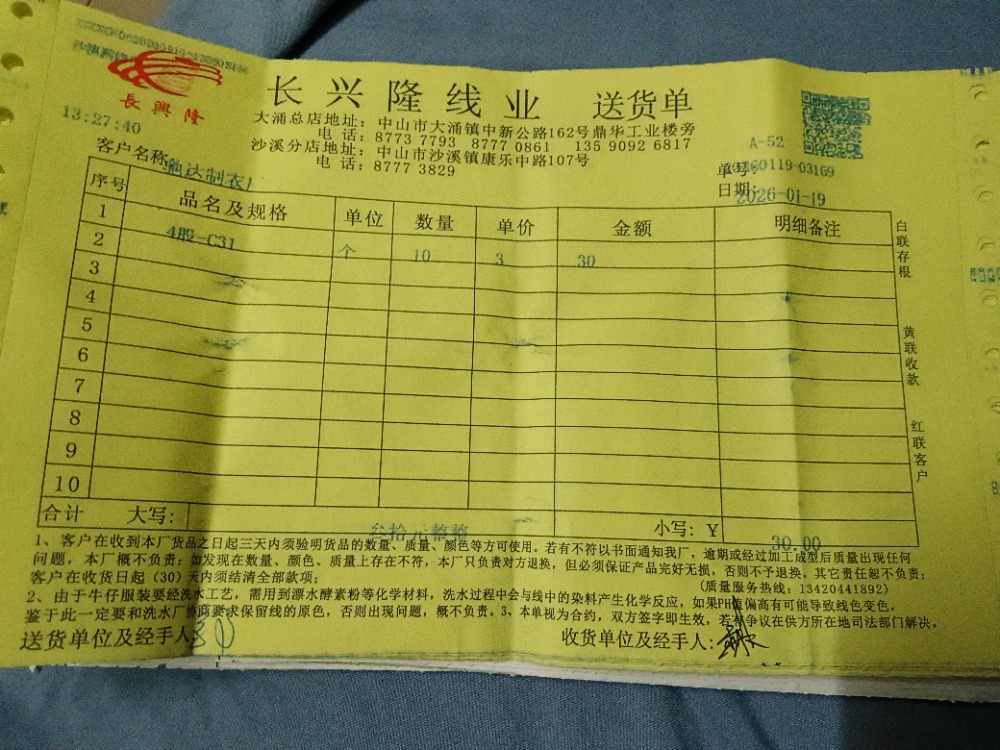 長興隆
13:27:40
长兴隆线业 送货单
大涌总店地址：中山市大涌镇中新公路162号鼎华工业楼旁
电 话：8773 7793 8777 0861 135 9092 6817
沙溪分店地址：中山市沙溪镇康乐中路107号
电 话：8777 3829
A-52
单号：20260119-03169
日期：2026-01-19
客户名称 达制衣厂
序号 品名及规格 单位 数量 单价 金额 明细备注
1 4股-C31 个 10 3 30
2
3
4
5
6
7
8
9
10
合计 大写： 叁拾元整 小写：￥ 30.00
白联存根
黄联收款
红联客户
1、客户在收到本厂货品之日起三天内须验明货品的数量、质量、颜色等方可使用。若有不符以书面通知我厂，逾期或经过加工成型后质量出现任何
问题，本厂概不负责；如发现在数量、颜色、质量上存在不符，本厂只负责对方退换，但必须保证产品完好无损，否则不予退换，其它责任恕不负责；
客户在收货日起（30）天内须结清全部款项； （质量服务热线：13420441892）
2、由于牛仔服装要经洗水工艺，需用到漂水酵素粉等化学材料，洗水过程中会与线中的染料产生化学反应，如果PH值偏高有可能导致线色变色，
鉴于此一定要和洗水厂协商要求保留线的原色，否则出现问题，概不负责。3、本单视为合约，双方签字即生效，若有争议在供方所在地司法部门解决。
送货单位及经手人 收货单位及经手人：